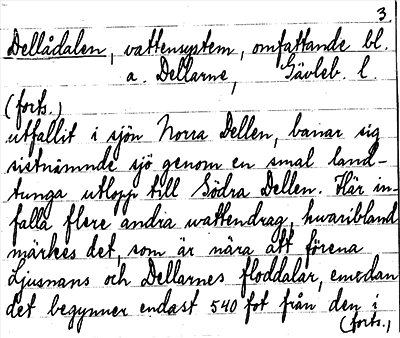 3.
Dellådalen, vattensystem, omfattande bl.
a. Dellarne, Gävleb. l.
(forts.)
utfallit i sjön Norra Dellen, banar sig
sistnämnde sjö genom en smal land-
tunga utlopp till Södra Dellen. Här in-
falla flere andra wattendrag, hwaribland
märkes det, som är nära att förena
Ljusnans och Dellarnes floddalar, emedan
det begynner endast 540 fot från den i
(forts.)